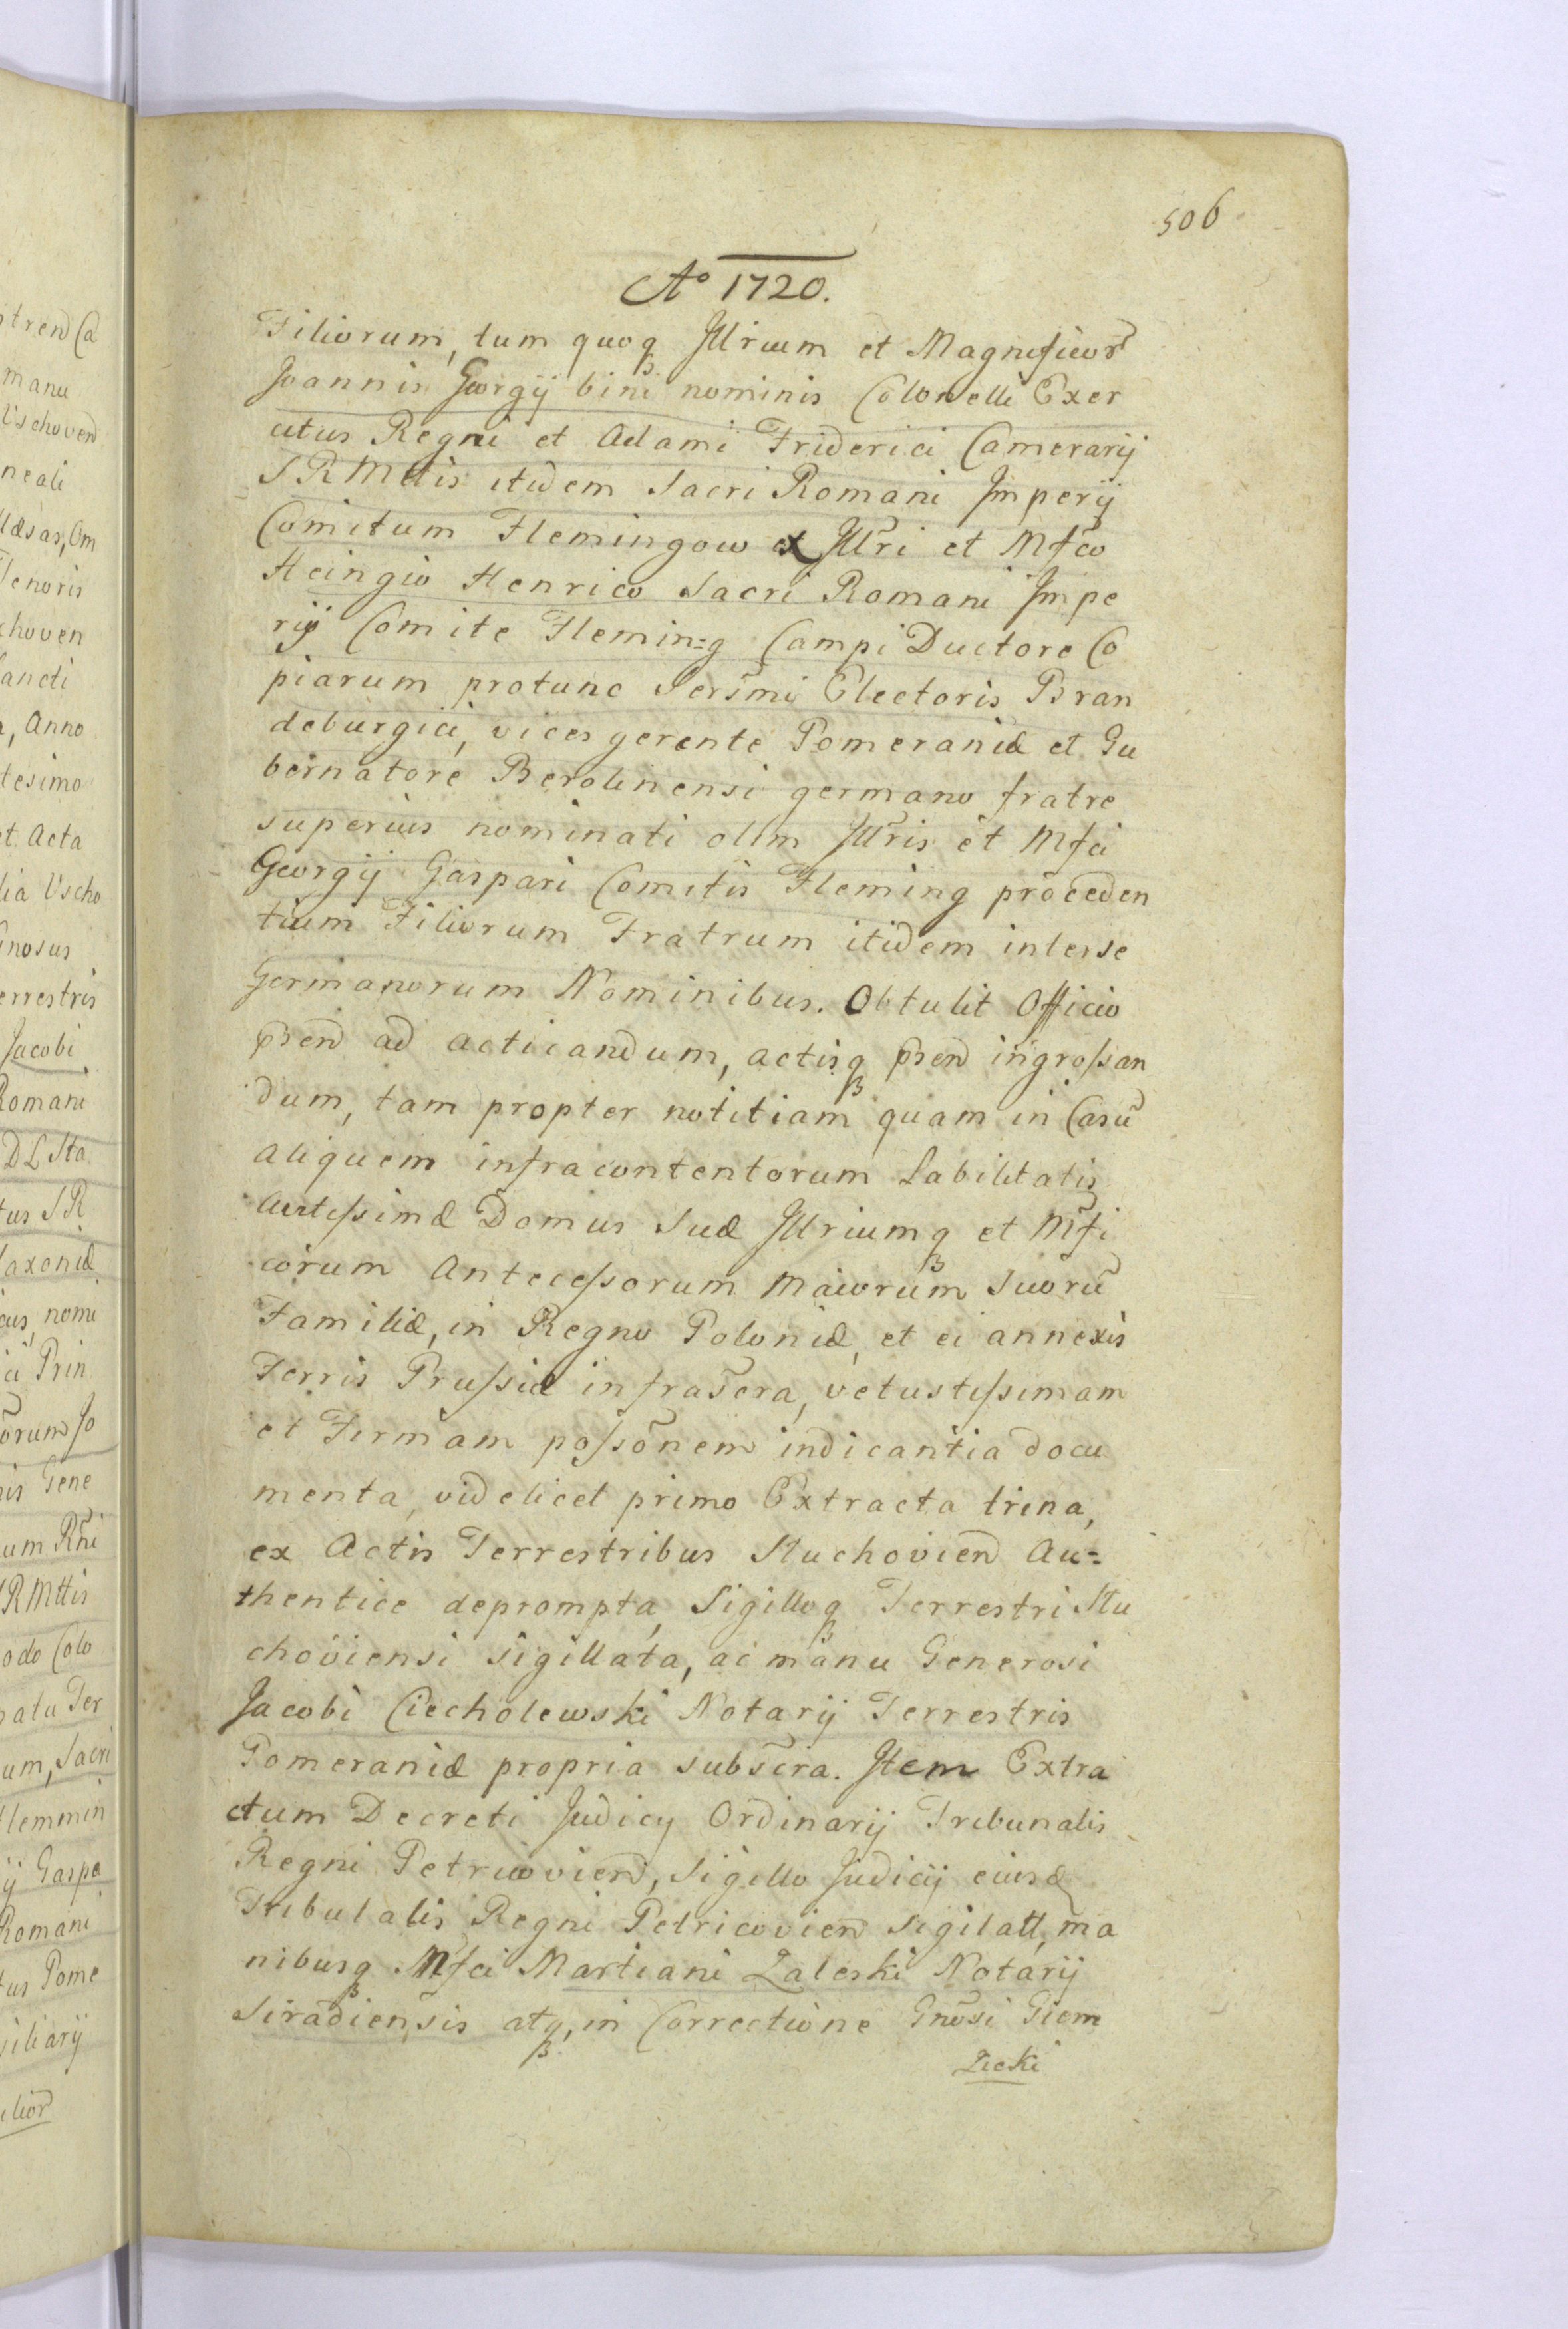 506
Ao 1720.
Filiorum, tum quoq Jllrium et Magnificor
Joannis Georgij bini nominis Colonelli Exer
citus Regni et Adami Friderici Camerarij
S R Mttis itidem Sacri Romani Imperij
Comitum Flemingow ex Jllri et Mfco
Heingio Henrico Sacri Romani Impe
rij Comite Flemin=g Campi Ductore Co
piarum protunc Sersmi Electoris Bran
deburgici, vices gerente Pomeraniæ et Gu
bernatore Berolinensi germano fratre
superius nominati olim Jllris et Mfci
Georgij Gaspari Comitis Fleming proceden
tium Filiorum Fratrum itidem interse
Germanorum Nominibus. Obtulit Officio
psen ad acticandum, actisq psen ingrossan
dum, tam propter notitiam quam in Casu
aliquem infracontentorum Labilitatis
Avitissimæ Domus Suæ Jllriumq et Mfi
corum Antecessorum Maiorum Suoru
Familiæ, in Regno Poloniæ, et ei annexis
Terris Prussiæ infrascra, vetustissimam
et Firmam possonem indicantia docu
menta, videlicet primo Extracta trina,
ex Actis Terrestribus Stuchovien Au=
thentice deprompta, Sigilloq Terrestri Stu
choviensi sigillata, ac manu Generosi
Jacobi Ciecholewski Notarij Terrestris
Pomeraniæ propria subscra. Item Extra
ctum Decreti Judicy Ordinarij Tribunalis
Regni Petricovien, Sigillo Judicij eiusd
Tribulalis Regni Petricovien Sigilatt, ma
nibusq Mfci Martiani Zaleski Notarij
Siradiensis atq, in Correctione Gnosi Giem
Zicki